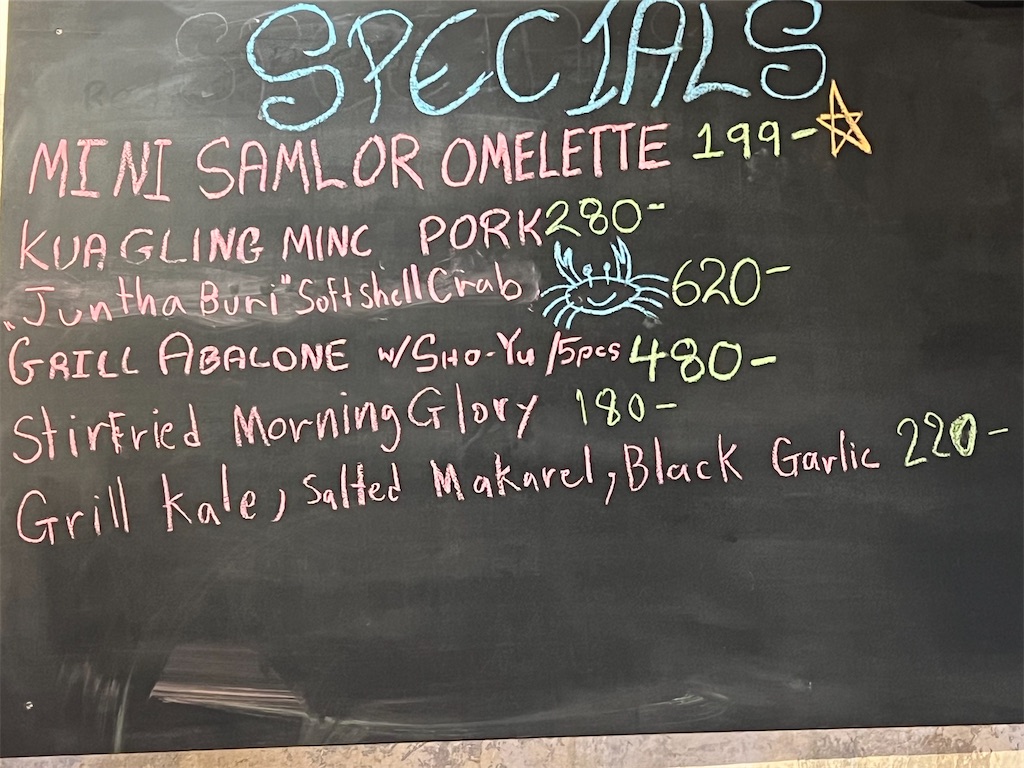 SPECIALS
MINI SAMLOR OMELETTE 199-
KUAGLING MINC PORK 280-
"Juntha Buri" Softshell Crab 620-
GRILL ABALONE W/SHO-YU /5pcs 480-
StirFried Morning Glory 180-
Grill kale, Salted Makarel, Black Garlic 220-